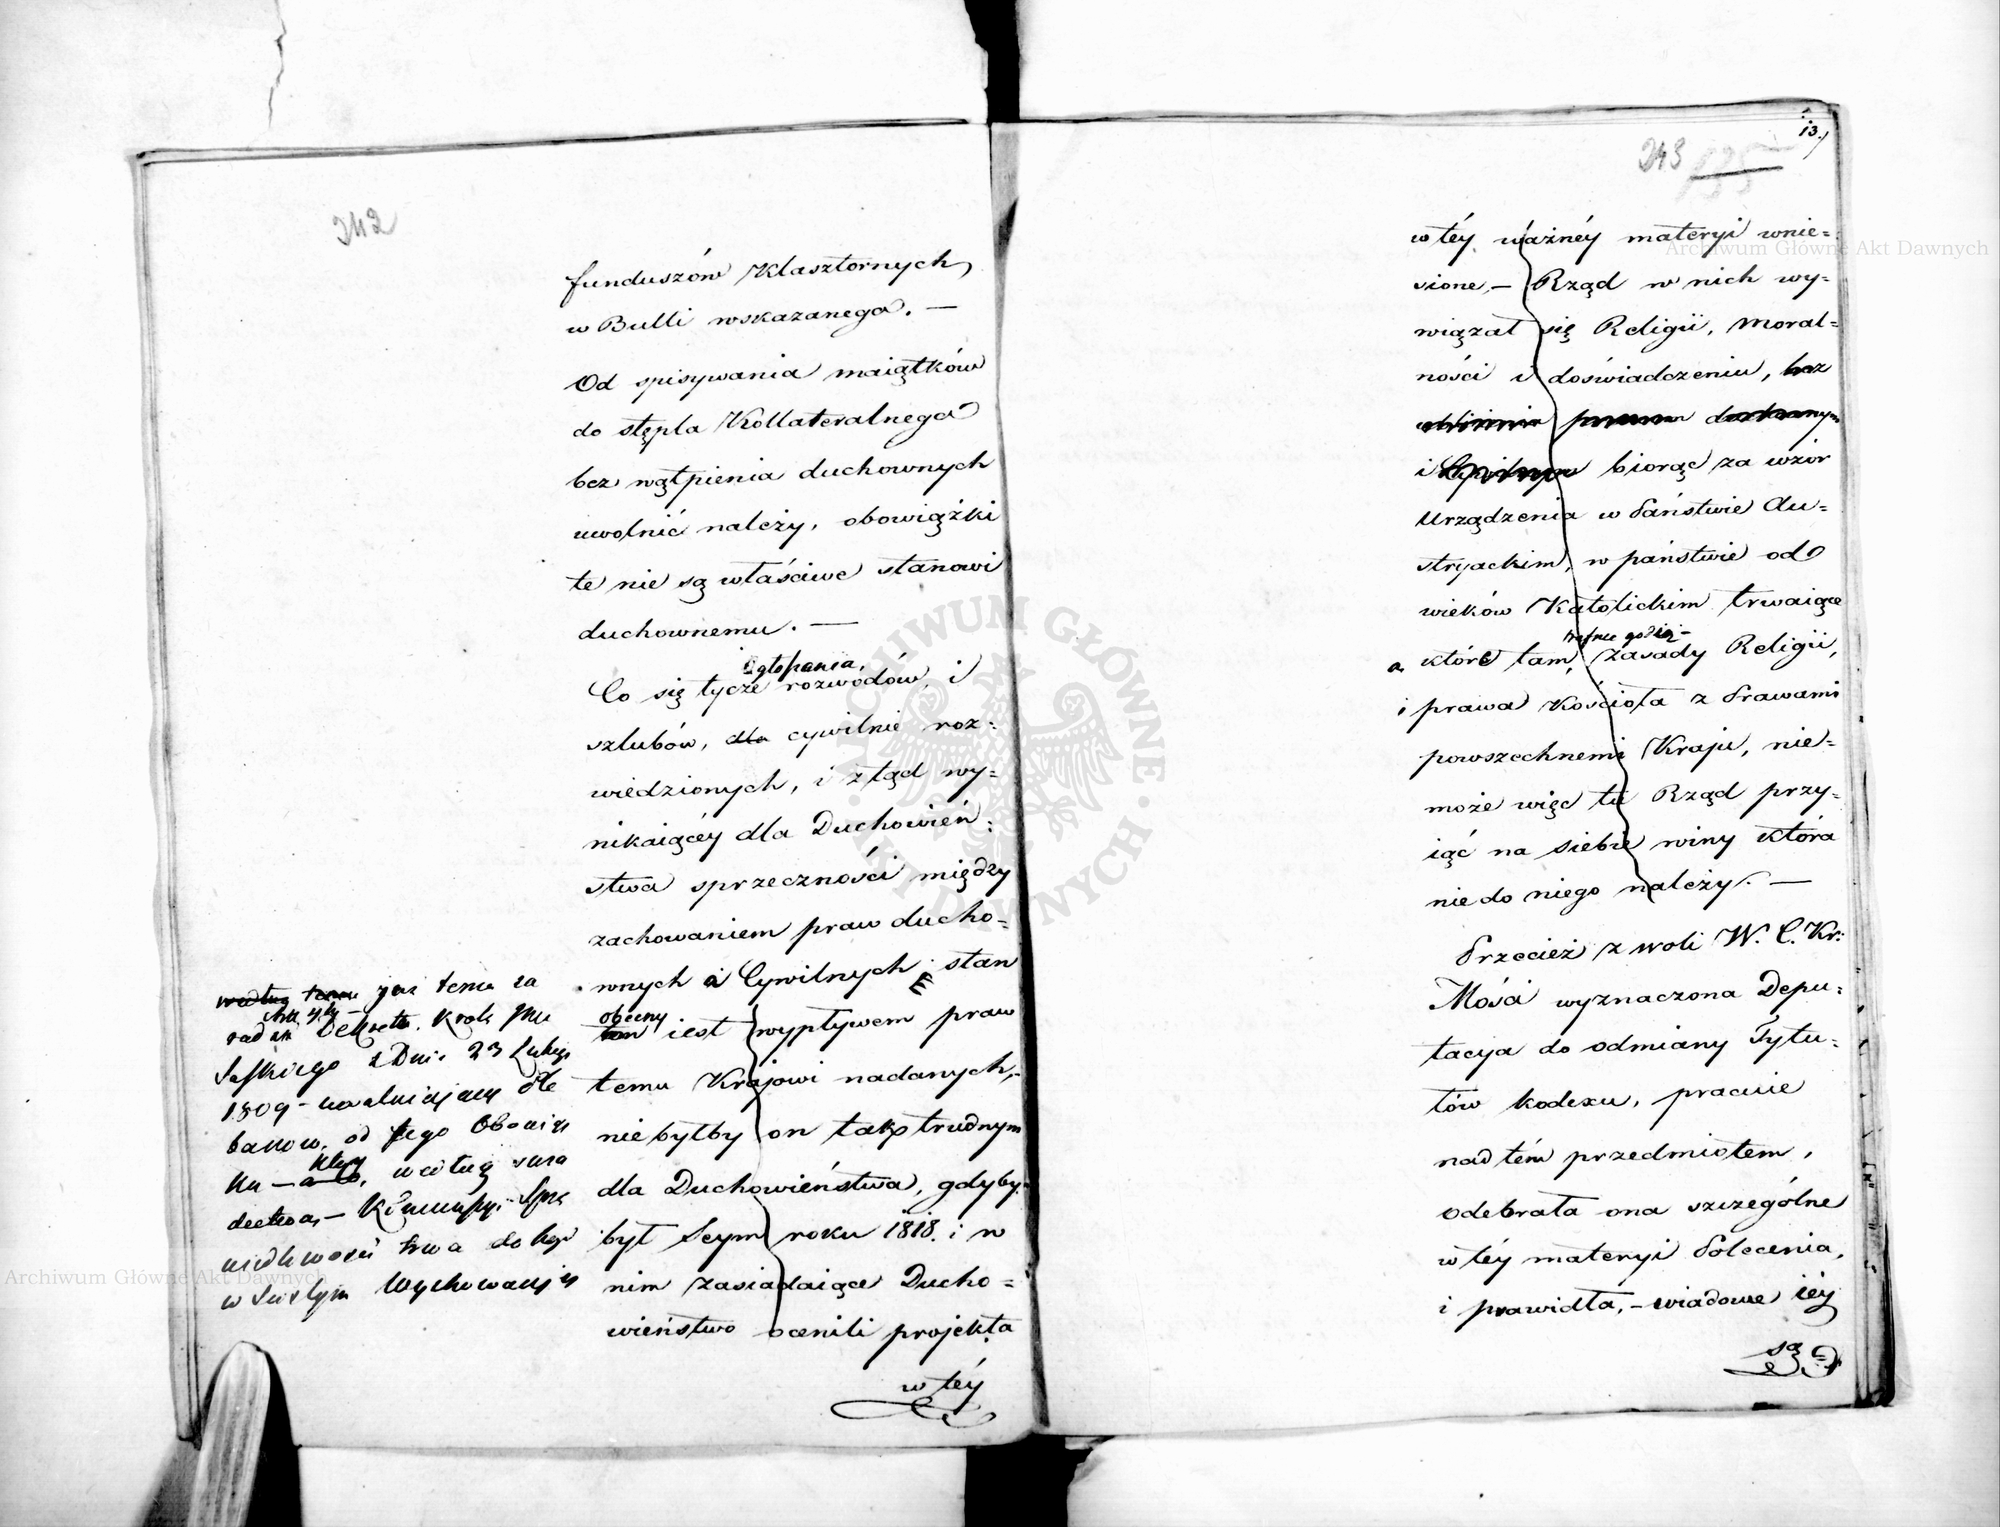 242
funduszów Klasztornych,
w Bulli wskazanego. —
Od spisywania maiątków
do stępla Kollateralnego
bez wątpienia duchownych
uwolnić należy, obowiązki
te nie są właściwe stanowi
duchownemu. —
ogłaszania,
Co się tycze rozwodów, i
szlubów, dla cywilnie roz=
wiedzionych, i ztąd wy=
nikaiącéy dla Duchowień=
stwa sprzeczności między
zachowaniem praw ducho=
wnych a Cywilnych stan
obecny
ten iest wypływem praw
temu Krajowi nadanych,
nie byłby on tak trudnym
dla Duchowieństwa, gdyby
był Seym roku 1818. i w
nim zasiadaiące Ducho=
wieństwo ocenili projekta
w téy
według temu już temu za
radził Dekret Króla
Saskiego z Dnia 23 Lutego
1809 — uwalniający Ple
banów, od tego Obowiąz
ku — który, według
trwa do tego
w
243
13.
w téy ważnéy materyi wnie=
sione, — Rząd w nich wy=
wiązał się Religii, Moral=
ności i doświadczeniu, bez
i biorąc za wzór
Urządzenia w Państwie Au=
stryackim, w państwie od
wieków Katolickim trwaiące
godzi —
a które tam, zasady Religii,
i prawa Kościoła z Prawami
powszechnemi Kraju, nie=
może więc tu Rząd przy=
iąć na siebie winy która
nie do niego należy. —
Przecież z woli W. C. Kr:
Mości wyznaczona Depu=
tacya do odmiany Tytu=
łów kodexu, pracuie
nad tém przedmiotem,
odebrała ona szczególne
w téy materyi Polecenia,
i prawidła, — wiadome iéy
są
Archiwum Główne Akt Dawnych
Archiwum Główne Akt Dawnych
ARCHIWUM GŁÓWNE · AKT DAWNYCH ·